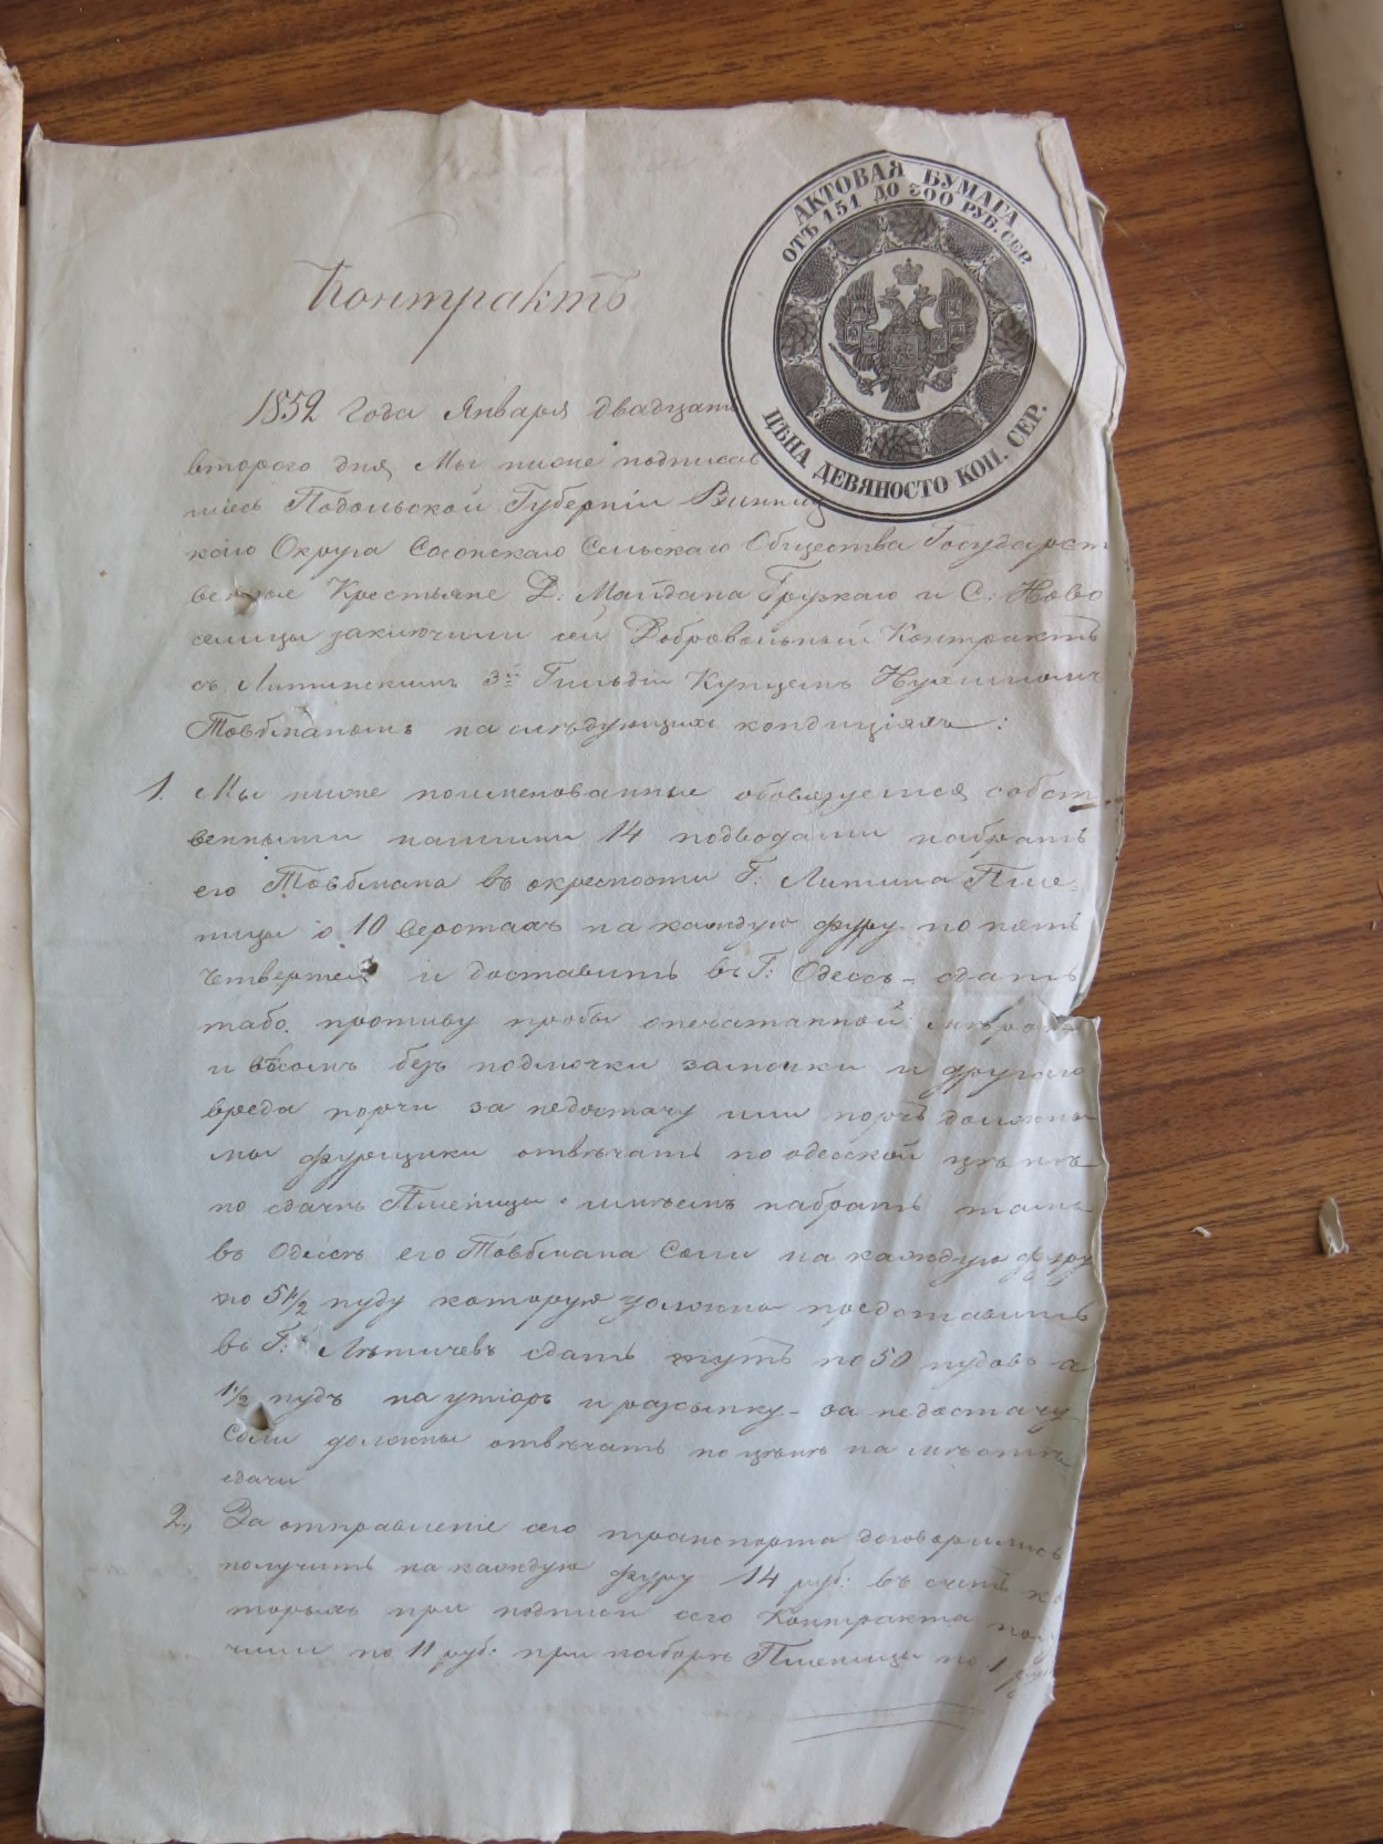 АКТОВАЯ БУМАГА
ОТЪ 151 ДО 300 РУБ. СЕР.
ЦѢНА ДЕВЯНОСТО КОП. СЕР.
Контрактъ
1852 Года Января двадцать
втораго дня, Мы ниже подписав
шіесь Подольской Губерніи Винниц
каго Округа Сосонскаго Сельскаго Общества Государст
венные Крестьяне Д: Майдана Грузкаго и С: Ново
селицы заключили сей Добровольный Контрактъ
съ Литинскимъ 3й Гильдіи Купцемъ Нухимомъ
Товбманомъ на слѣдующихъ кондиціяхъ:
1. Мы ниже поименованные обовязуемся собст
венными нашими 14 подводами набрать
его Товбмана въ окрестности Г: Литина Пше
ницы о 10 верстахъ на каждую фуру по пять
четвертей и доставить въ Г: Одессъ - сдать
противу пробы опечатанной мѣрою
и вѣсомъ безъ подмочки замочки и другаго
вреда порчи за недостачу или порчъ должны
мы фурщики отвѣчать по одесской цѣнѣ
по сдачѣ Пшеницы имѣемъ набрать тамъ
въ Одессѣ его Товбмана Соли на каждую фуру
по 51 1/2 пуду которую должны предоставить
въ Г: Лѣтичевъ сдать тутъ по 50 пудовъ а
1 1/2 пудъ на и разсыпку - за недостачу
Соли должны отвѣчать по цѣнѣ на мѣстѣ
сдачи
2., За отправленіе сего транспорта договорились
получить на каждую фуру 14 руб: въ счетъ ко
торыхъ при подписи сего Контракта полу
чили по 11 руб: при наборѣ Пшеницы по 1 руб